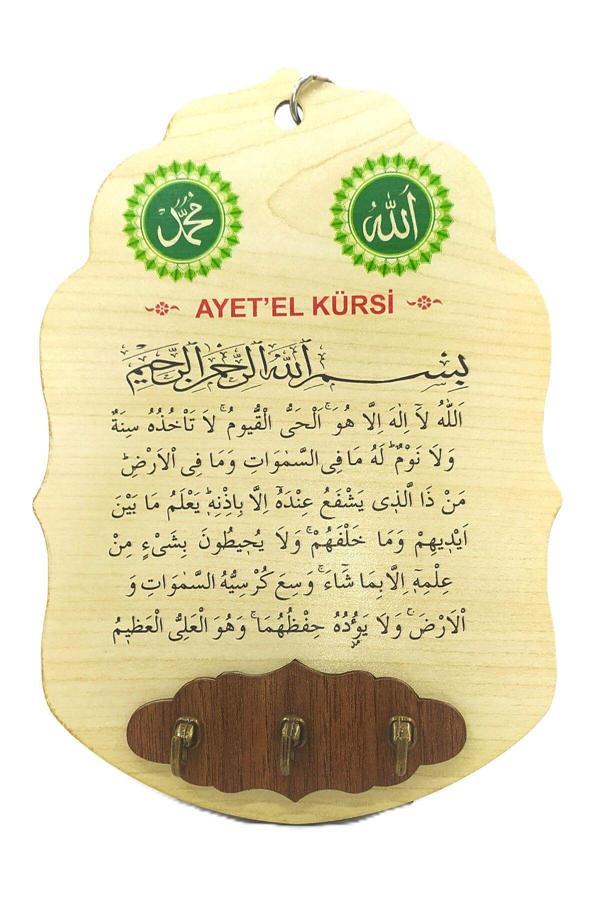 الله
محمد
AYET'EL KÜRSİ
بِسْمِ اللهِ الرَّحْمٰنِ الرَّحِيمِ
اَللّٰهُ لَٓا اِلٰهَ اِلَّا هُوَۚ اَلْحَيُّ الْقَيُّومُۚ لَا تَاْخُذُهُ سِنَةٌ
وَلَا نَوْمٌۜ لَهُ مَا فِى السَّمٰوَاتِ وَمَا فِى الْاَرْضِۜ
مَنْ ذَا الَّذِى يَشْفَعُ عِنْدَهُٓ اِلَّا بِاِذْنِهِۜ يَعْلَمُ مَا بَيْنَ
اَيْدِيهِمْ وَمَا خَلْفَهُمْۚ وَلَا يُحِيطُونَ بِشَىْءٍ مِنْ
عِلْمِهِٓ اِلَّا بِمَا شَٓاءَۚ وَسِعَ كُرْسِيُّهُ السَّمٰوَاتِ وَ
الْاَرْضَۚ وَلَا يَؤُ۫دُهُ حِفْظُهُمَاۚ وَهُوَ الْعَلِىُّ الْعَظِيمُ